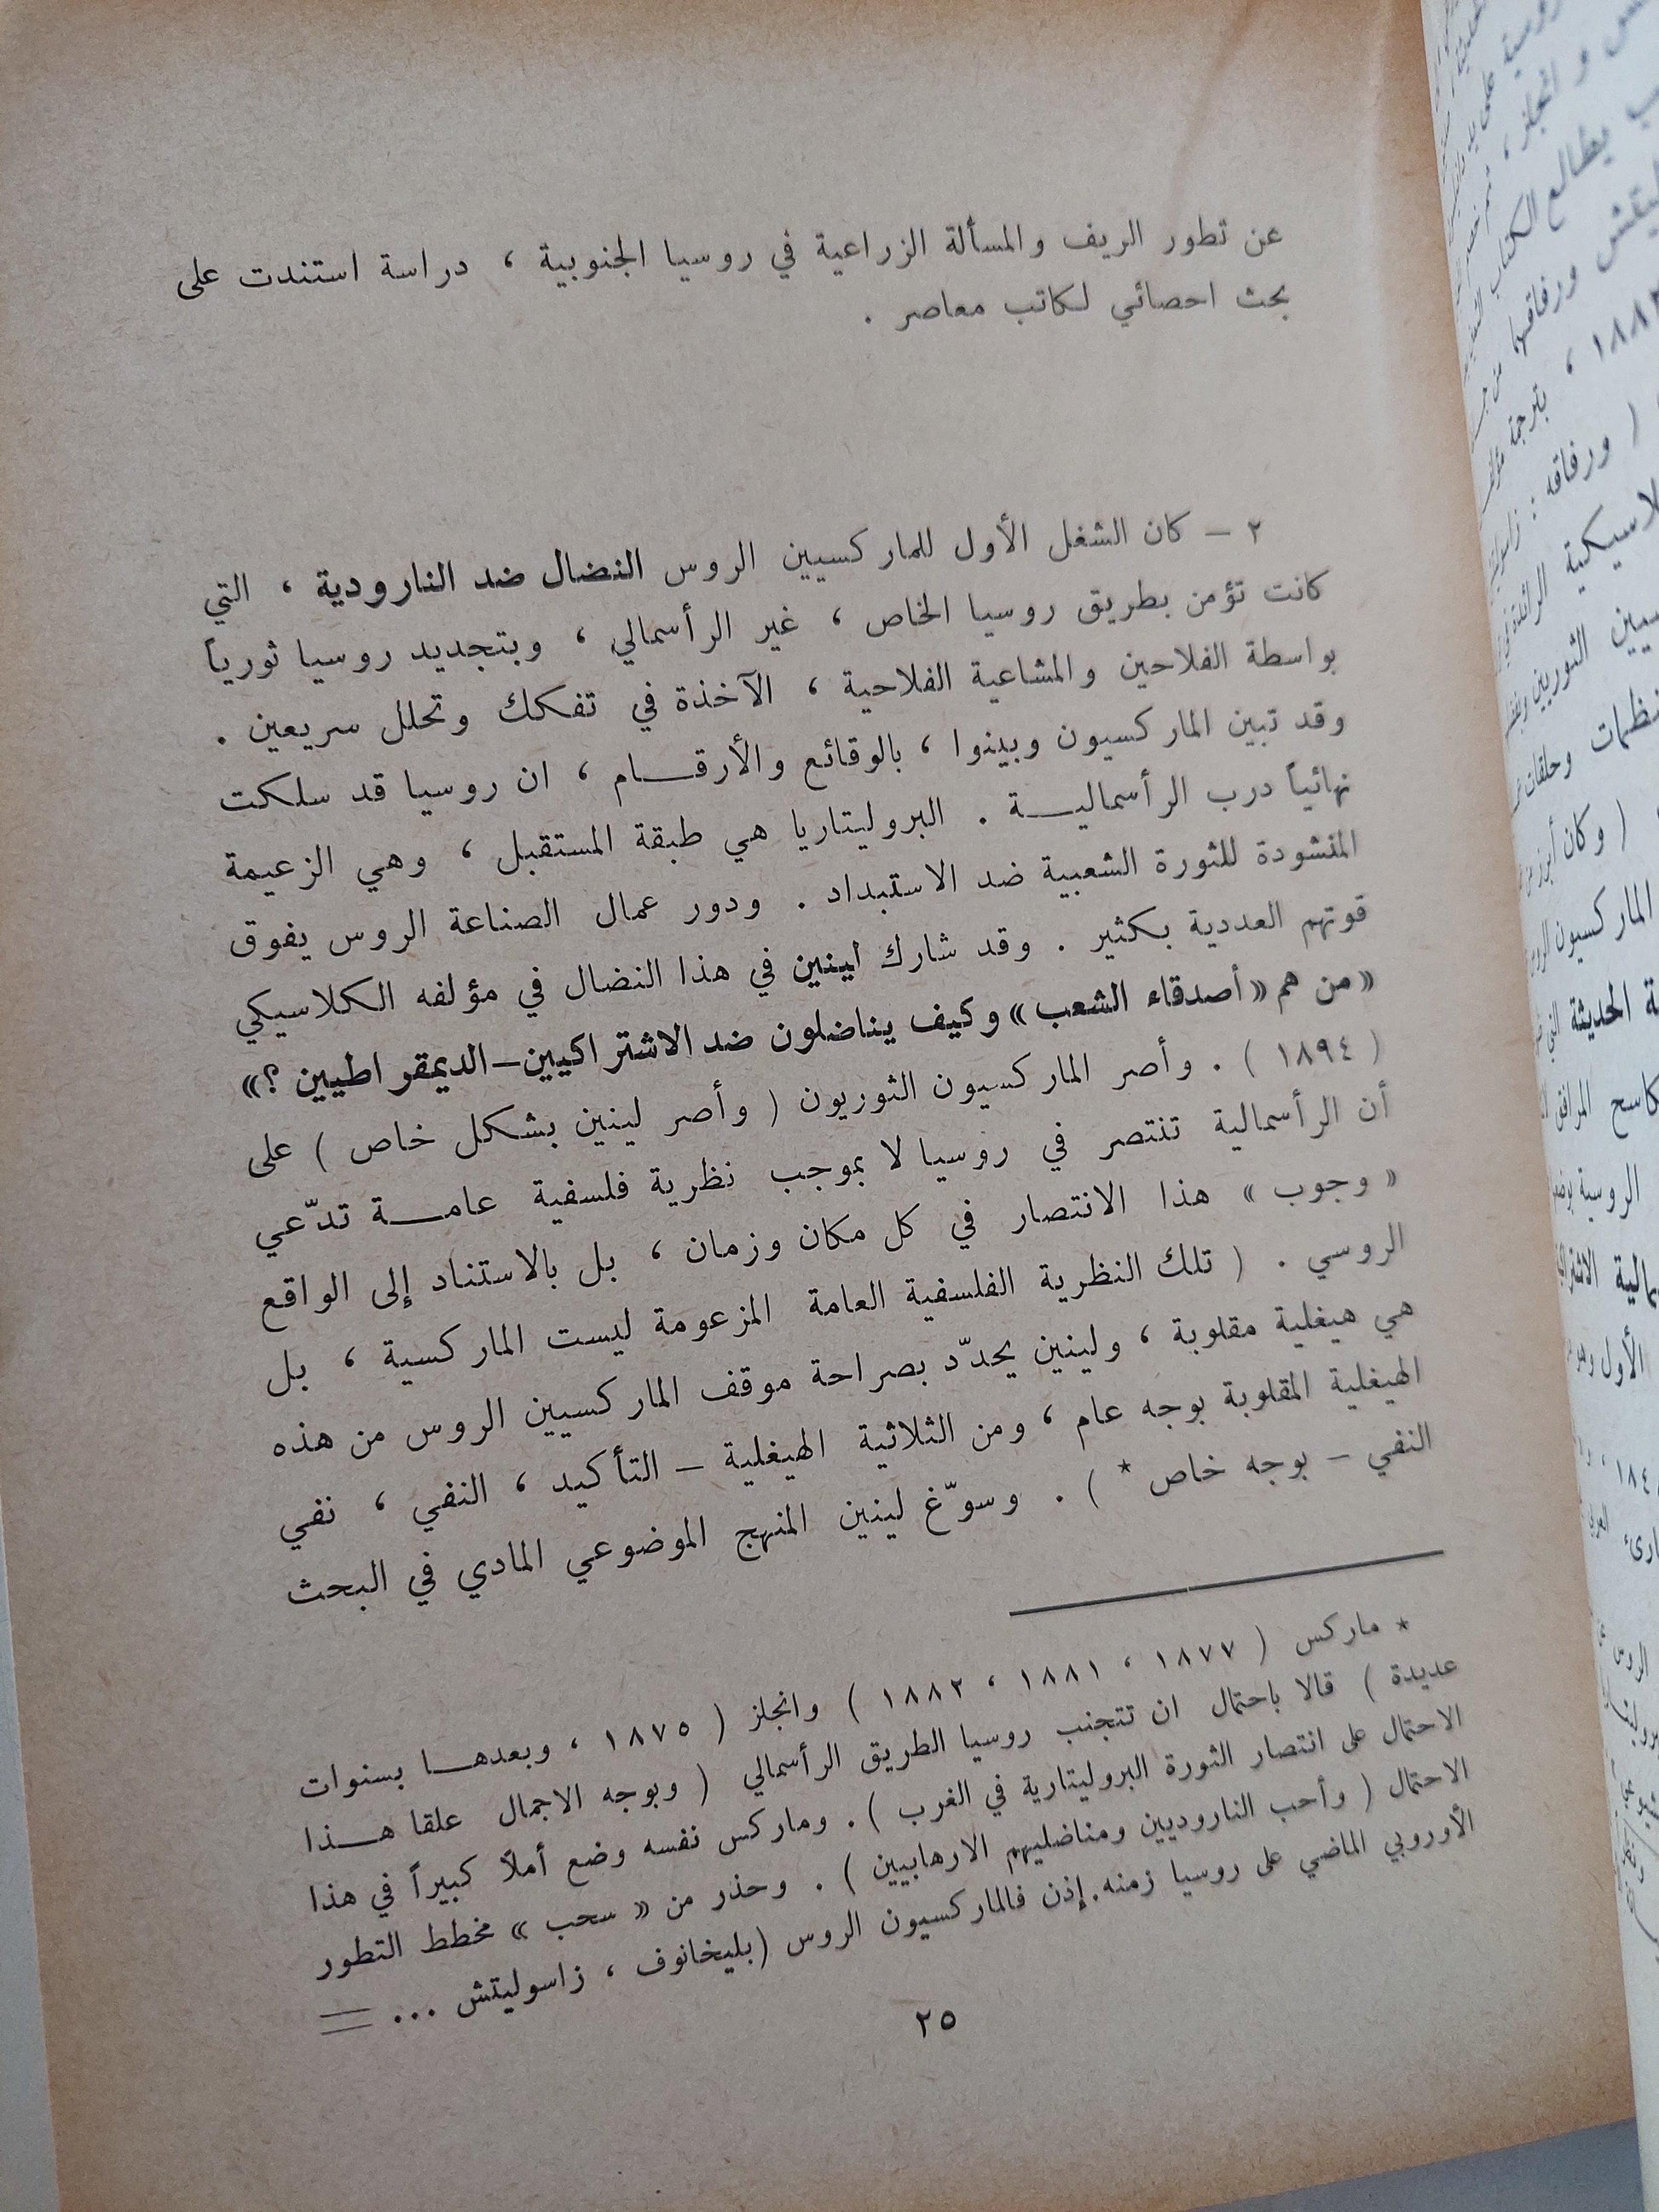 عن تطور الريف والمسألة الزراعية في روسيا الجنوبية ، دراسة استندت على
بحث احصائي لكاتب معاصر .
٢ – كان الشغل الأول للماركسيين الروس النضال ضد النارودية ، التي
كانت تؤمن بطريق روسيا الخاص ، غير الرأسمالي ، وبتجديد روسيا ثورياً
بواسطة الفلاحين والمشاعية الفلاحية ، الآخذة في تفكك وتحلل سريعين .
وقد تبين الماركسيون وبينوا ، بالوقائع والأرقـــام ، ان روسيا قد سلكت
نهائياً درب الرأسماليـــة . البروليتاريا هي طبقة المستقبل ، وهي الزعيمة
المنشودة للثورة الشعبية ضد الاستبداد . ودور عمال الصناعة الروس يفوق
قوتهم العددية بكثير . وقد شارك لينين في هذا النضال في مؤلفه الكلاسيكي
« من هم « أصدقاء الشعب » وكيف يناضلون ضد الاشتراكيين–الديمقراطيين ؟»
( ١٨٩٤ ) . وأصر الماركسيون الثوريون ( وأصر لينين بشكل خاص ) على
أن الرأسمالية تنتصر في روسيا لا بموجب نظرية فلسفية عامـــة تدّعي
« وجوب » هذا الانتصار في كل مكان وزمان ، بل بالاستناد إلى الواقع
الروسي . ( تلك النظرية الفلسفية العامة المزعومة ليست الماركسية ، بل
هي هيغلية مقلوبة ، ولينين يحدّد بصراحة موقف الماركسيين الروس من هذه
الهيغلية المقلوبة بوجه عام ، ومن الثلاثية الهيغلية – التأكيد ، النفي ، نفي
النفي – بوجه خاص * ) . وسوّغ لينين المنهج الموضوعي المادي في البحث
* ماركس ( ١٨٧٧ ، ١٨٨١ ، ١٨٨٢ ) وانجلز ( ١٨٧٥ ، وبعدهـــا بسنوات
عديدة ) قالا باحتمال ان تتجنب روسيا الطريق الرأسمالي ( وبوجه الاجمال علقا هـــذا
الاحتمال على انتصار الثورة البروليتارية في الغرب ) . وماركس نفسه وضع أملاً كبيراً في هذا
الاحتمال ( وأحب الناروديين ومناضليهم الارهابيين ) . وحذر من « سحب » مخطط التطور
الأوروبي الماضي على روسيا زمنه . إذن فالماركسيون الروس ( بليخانوف ، زاسوليتش ... =
٢٥